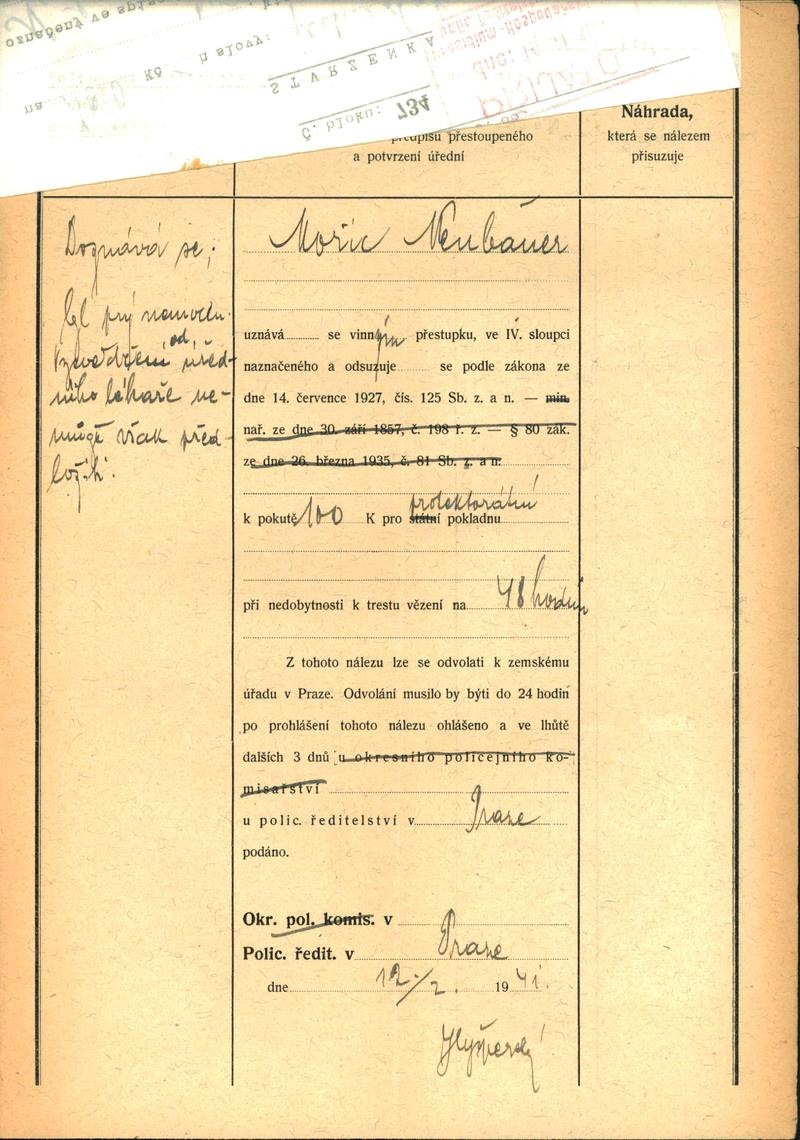 označený ve
na Kč h slovy:
STVRZENKA
Č. bloku: 734
PŘIJATO
dne:
předpisu přestoupeného
a potvrzení úřední
Náhrada,
která se nálezem
přisuzuje
Doznává se,
byl prý nemocen.
Vysvědčení od úřed-
ního lékaře ne-
může však před-
ložit.
Mořic Neubauer
uznává se vinným přestupku, ve IV. sloupci
naznačeného a odsuzuje se podle zákona ze
dne 14. července 1927, čís. 125 Sb. z. a n. — min.
nař. ze dne 30. září 1857, č. 198 ř. z. — § 80 zák.
ze dne 26. března 1935, č. 81 Sb. z. a n.
protektorátní
k pokutě 100 K pro státní pokladnu
při nedobytnosti k trestu vězení na 48 hodin
Z tohoto nálezu lze se odvolati k zemskému
úřadu v Praze. Odvolání musilo by býti do 24 hodin
po prohlášení tohoto nálezu ohlášeno a ve lhůtě
dalších 3 dnů u okresního policejního ko-
misařství
u polic. ředitelství v Praze
podáno.
Okr. pol. komis. v
Polic. ředit. v Praze
dne 12./2. 1941.